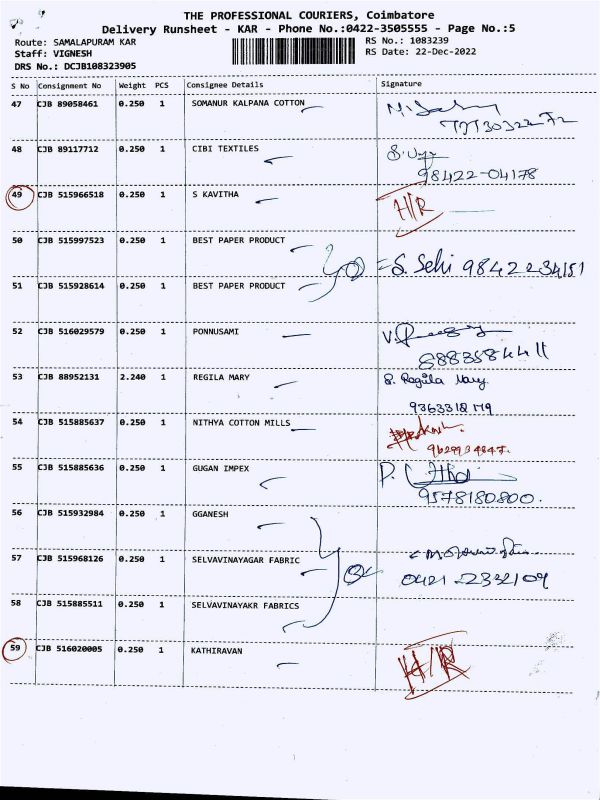 THE PROFESSIONAL COURIERS, Coimbatore
Delivery Runsheet - KAR - Phone No.:0422-3505555 - Page No.:5
Route: SAMALAPURAM KAR
RS No.: 1083239
Staff: VIGNESH
RS Date: 22-Dec-2022
DRS No.: DCJB108323905
S No Consignment No Weight PCS Consignee Details Signature
47 CJB 89058461 0.250 1 SOMANUR KALPANA COTTON
48 CJB 89117712 0.250 1 CIBI TEXTILES
98422-04178
49 CJB 515966518 0.250 1 S KAVITHA H/R
50 CJB 515997523 0.250 1 BEST PAPER PRODUCT
S. Sehi 9842234151
51 CJB 515928614 0.250 1 BEST PAPER PRODUCT
52 CJB 516029579 0.250 1 PONNUSAMI
53 CJB 88952131 2.240 1 REGILA MARY S. Regila Mary
54 CJB 515885637 0.250 1 NITHYA COTTON MILLS
55 CJB 515885636 0.250 1 GUGAN IMPEX
9578180800.
56 CJB 515932984 0.250 1 GGANESH
57 CJB 515968126 0.250 1 SELVAVINAYAGAR FABRIC
0421-2332109
58 CJB 515885511 0.250 1 SELVAVINAYAKR FABRICS
59 CJB 516020005 0.250 1 KATHIRAVAN H/R